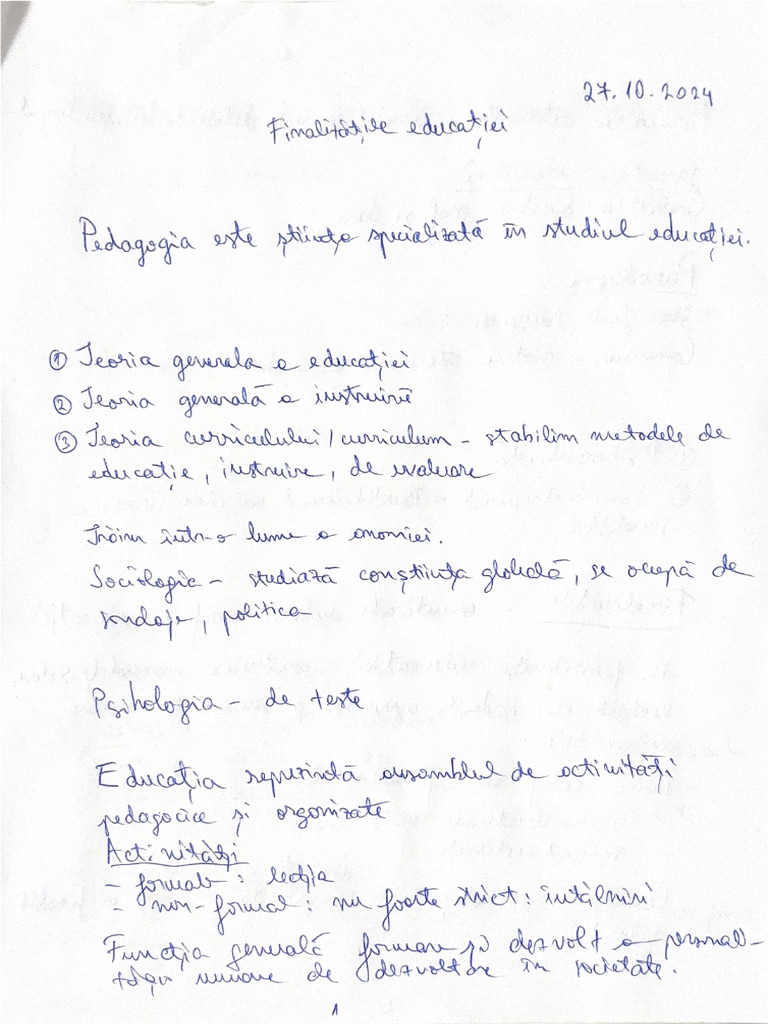 27.10.2024
Finalitățile educației
Pedagogia este știința specializată în studiul educației.
① Teoria generala a educației
② Teoria generală a instruirii
③ Teoria curriculului/curriculum - stabilim metodele de
educație, instruire, de evaluare
Trăim într-o lume a anomiei.
Sociologia - studiază conștiința globală, se ocupă de
sondaje, politica
Psihologia - de teste
Educația reprezintă ansamblul de activități
pedagocice și organizate
Activități
- formale: lecția
- non-formal: nu foarte strict: întâlniri
Funcția generală formare și dezvolt a personal-
umane de dezvoltare în societate.
1